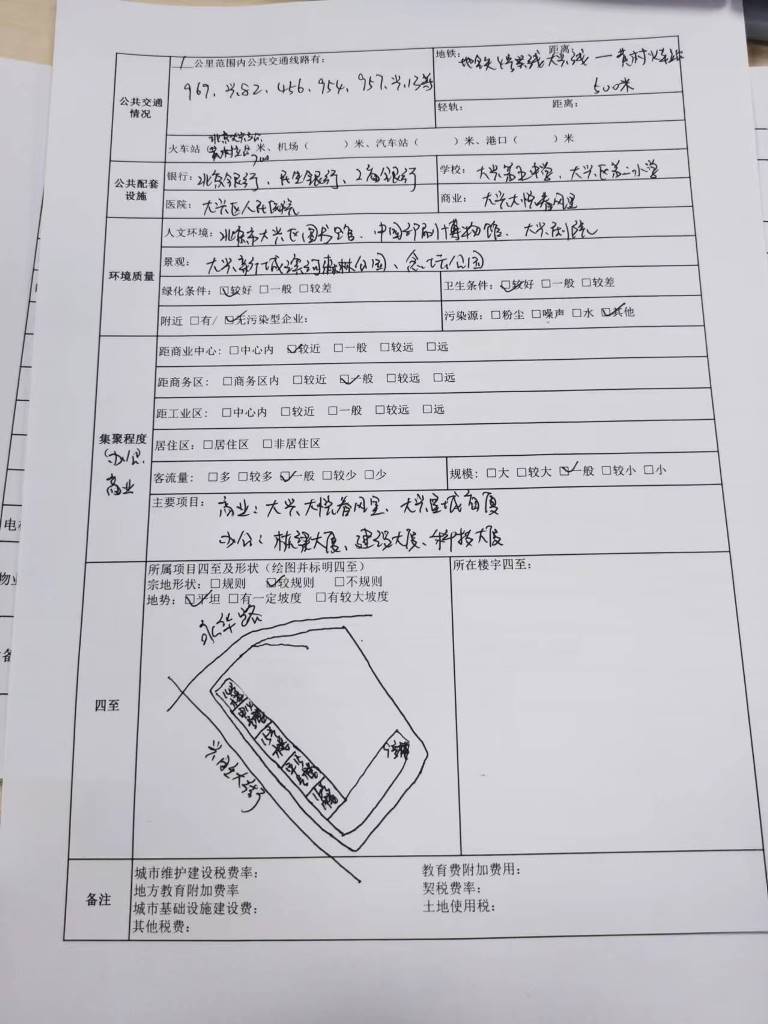 1公里范围内公共交通线路有: 地铁: 距离:
967、兴82、456、954、957、兴13等 地铁4号线大兴线—黄村火车站
公共交通情况 500米
轻轨: 距离:
火车站( 700 )米、机场( )米、汽车站( )米、港口( )米
公共配套设施 银行: 北京银行、民生银行、工商银行 学校: 大兴第五中学、大兴区第二小学
医院: 大兴区人民医院 商业: 大兴大悦春风里
人文环境: 北京市大兴区图书馆、中国印刷博物馆、大兴剧院
环境质量 景观: 大兴新城滨河森林公园、念坛公园
绿化条件: ☑较好 □一般 □较差 卫生条件: ☑较好 □一般 □较差
附近 □有/ ☑无污染型企业: 污染源: □粉尘 □噪声 □水 ☑其他
距商业中心: □中心内 ☑较近 □一般 □较远 □远
距商务区: □商务区内 □较近 ☑一般 □较远 □远
距工业区: □中心内 □较近 □一般 □较远 □远
集聚程度 居住区: □居住区 □非居住区
办公 商业
客流量: □多 □较多 ☑一般 □较少 □少 规模: □大 □较大 ☑一般 □较小 □小
主要项目: 商业: 大兴大悦春风里、大兴星城商厦
办公: 栋梁大厦、建设大厦、科技大厦
所属项目四至及形状(绘图并标明四至) 所在楼宇四至:
宗地形状: □规则 ☑较规则 □不规则
地势: ☑平坦 □有一定坡度 □有较大坡度
永华路
四至
兴丰大街
备注
城市维护建设税费率: 教育费附加费用:
地方教育附加费率 契税费率:
城市基础设施建设费: 土地使用税:
其他税费: